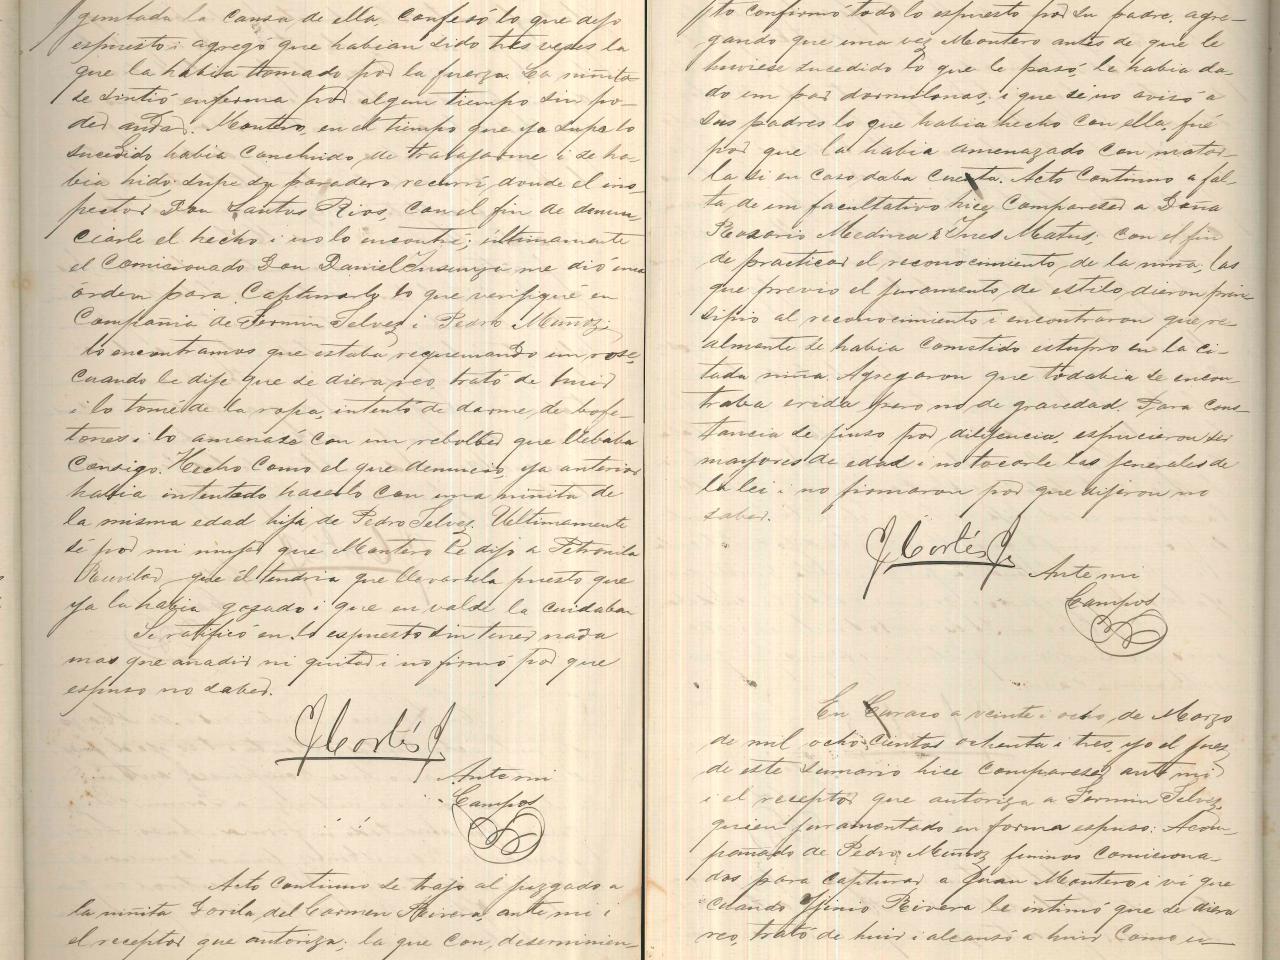 guntada la causa de ella, confesó lo que dejo
espuesto i agregó que habian sido tres veces la
que la habia tomado por la fuerza. La niñita
se sintió enferma por algun tiempo sin po-
der andar. Montero, en el tiempo que ya supe lo
sucedido habia concluido de trabajarme i se ha-
bia hido. Supe su paradero recurrí donde el ins-
pector Don Santos Rios, con el fin de denun-
ciarle el hecho i no lo encontré; últimamente
el comicionado Don Daniel Insunza me dió una
órden para capturarlo lo que verifiqué en
compañia de Fermin Selvez i Pedro Muñoz,
lo encontramos que estaba requemando un rose
cuando le dije que se diera reo, trató de huir
i lo tomé de la ropa, intentó de darme de bofe-
tones i lo amenasé con un rebolber que llebaba
consigo. Hecho como el que denuncio, ya anterior
habia intentado hacerlo con una niñita de
la misma edad hija de Pedro Selvez. Ueltimamente
sé por mi mujer que Montero le dijo a Petronila
que él tendria que llevarsela puesto que
ya la habia gozado i que en valde la cuidaban
Se ratificó en lo espuesto sin tener nada
mas que añadir ni quitar i no firmó por que
espuso no saber.
J Cortés J.
Ante mi
Campos
Acto continuo se trajo al juzgado a
la niñita Zorila del Carmen Rivera, ante mi i
el receptor que autoriza; la que con desernimien-
to confirmó todo lo espuesto por su padre, agre-
gando que una vez Montero antes de que le
huviese sucedido lo que le pasó, le habia da-
do un par dormilonas, i que si no avisó a
sus padres lo que habia hecho con ella, fué
por que la habia amenazado con matar-
la si en caso daba cuenta. Acto continuo a fal-
ta de un facultativo hice comparecer a Doña
Rosario Medina e Ines Matus, con el fin
de practicar el reconocimiento de la niña; las
que previo el juramento de estilo dieron prin-
sipio al reconocimiento i encontraron que re-
almente se habia cometido estupro en la ci-
tada niña. Agregaron que todabia se encon-
traba erida pero no de gravedad. Para cons-
tancia se puso por dilijencia, espucieron ser
mayores de edad i no tocarle las jenerales de
la lei i no firmaron por que dijeron no
saber.
J Cortés J.
Ante mi
Campos
En Curaco a veinte i ocho de Marzo
de mil ocho cientos ochenta i tres, yo el juez
de este sumario hice comparecer ante mi
i el receptor que autoriza a Fermin Selvez
quien juramentado en forma espuso: Acom-
pañado de Pedro Muñoz fuimos comiciona-
dos para capturar a Juan Montero i vi que
cuando Ijinio Rivera le intimó que se diera
reo, trató de huir i alcansó a huir como un